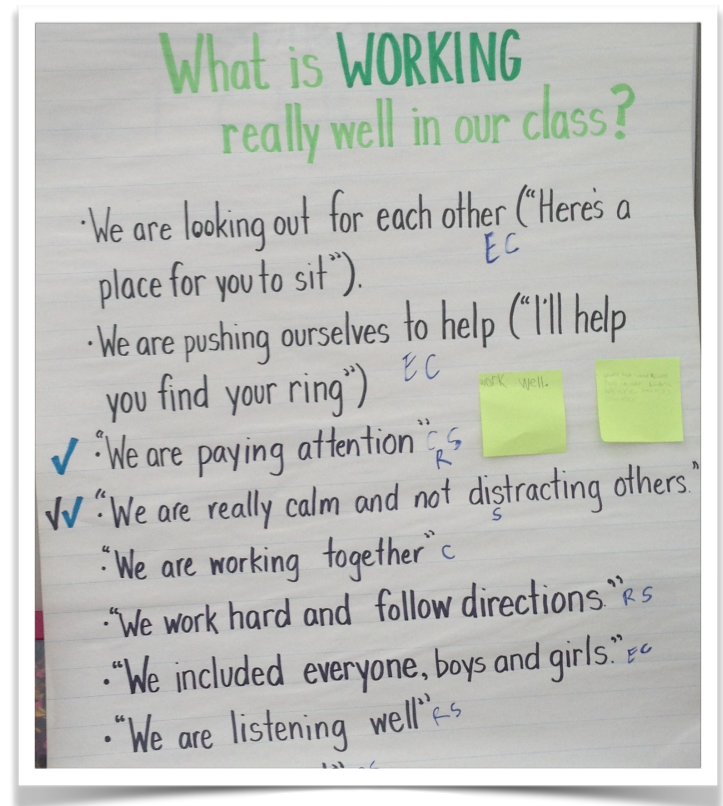 What is WORKING
really well in our class?
·We are looking out for each other ("Here's a
EC
place for you to sit").
·We are pushing ourselves to help ("I'll help
EC
you find your ring")
work well.
✓ ·"We are paying attention" C S
R
✓✓ ·"We are really calm and not distracting others."
S
·"We are working together" C
·"We work hard and follow directions." RS
·"We included everyone, boys and girls." EC
·"We are listening well" RS